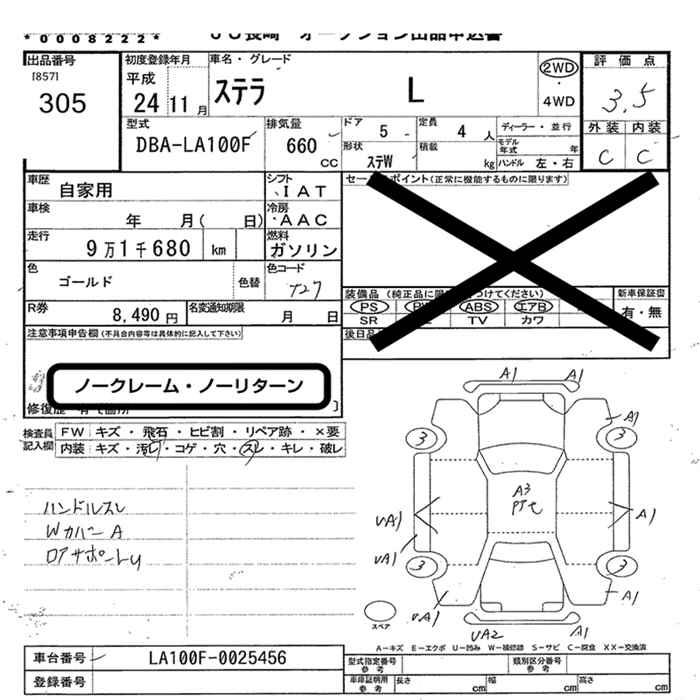 *0008222*
ＪＵ長崎 オークション出品申込書
出品番号
[857]
305
初度登録年月
平成
24 11 月
車名・グレード
ステラ L
2WD
・
4WD
評価点
3.5
外装 内装
C C
型式
DBA-LA100F
排気量
660
CC
ドア 5
定員 4 人
形状 ステW
積載 kg
ディーラー・並行
モデル年式 年
ハンドル 左・右
車歴 自家用
シフト IAT
車検 年 月( 日)
冷房 AAC
走行 9万1千680 km
燃料 ガソリン
色 ゴールド 色替
色コード T27
R券 8,490円
名変通知期限 月 日
セールスポイント(正常に機能するものに限ります)
新車保証書
有・無
PS ABS エアB
SR TV カワ
後日品
注意事項申告欄(不具合内容等は具体的に記入して下さい)
ノークレーム・ノーリターン
検査員記入欄
FW キズ・飛石・ヒビ割・リペア跡・×要
内装 キズ・汚レ・コゲ・穴・スレ・キレ・破レ
ハンドルスレ
WカバーA
A1 A1
A1
3 3
A3
UA1 A1
UA1
3 3
UA1 A1
UA2 A1
スペア
A-キズ E-エクボ U-凹み W-補修跡 S-サビ C-腐食 XX-交換済
車台番号 LA100F-0025456
登録番号
型式指定番号 参考
類別区分番号 参考
車庫証明用 参考
長さ cm 幅 cm 高さ cm